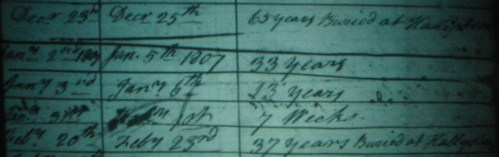 Decr 23d Decr 25th 65 years Buried at
Jany 2nd 1807 Jan. 5th 1807 33 years
Jany 3rd Jany 6th 23 years
1st 7 Weeks.
Feby 20th Feby 23rd 37 years Buried at